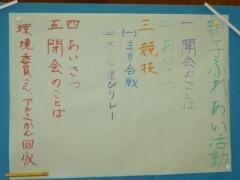 親子ふれあい活動
一 開会のことば
二 あいさつ
三 競技
(一) まり合戦
(二) ボール運びリレー
四 あいさつ
五 閉会のことば
環境委員さん、アルミかん回収